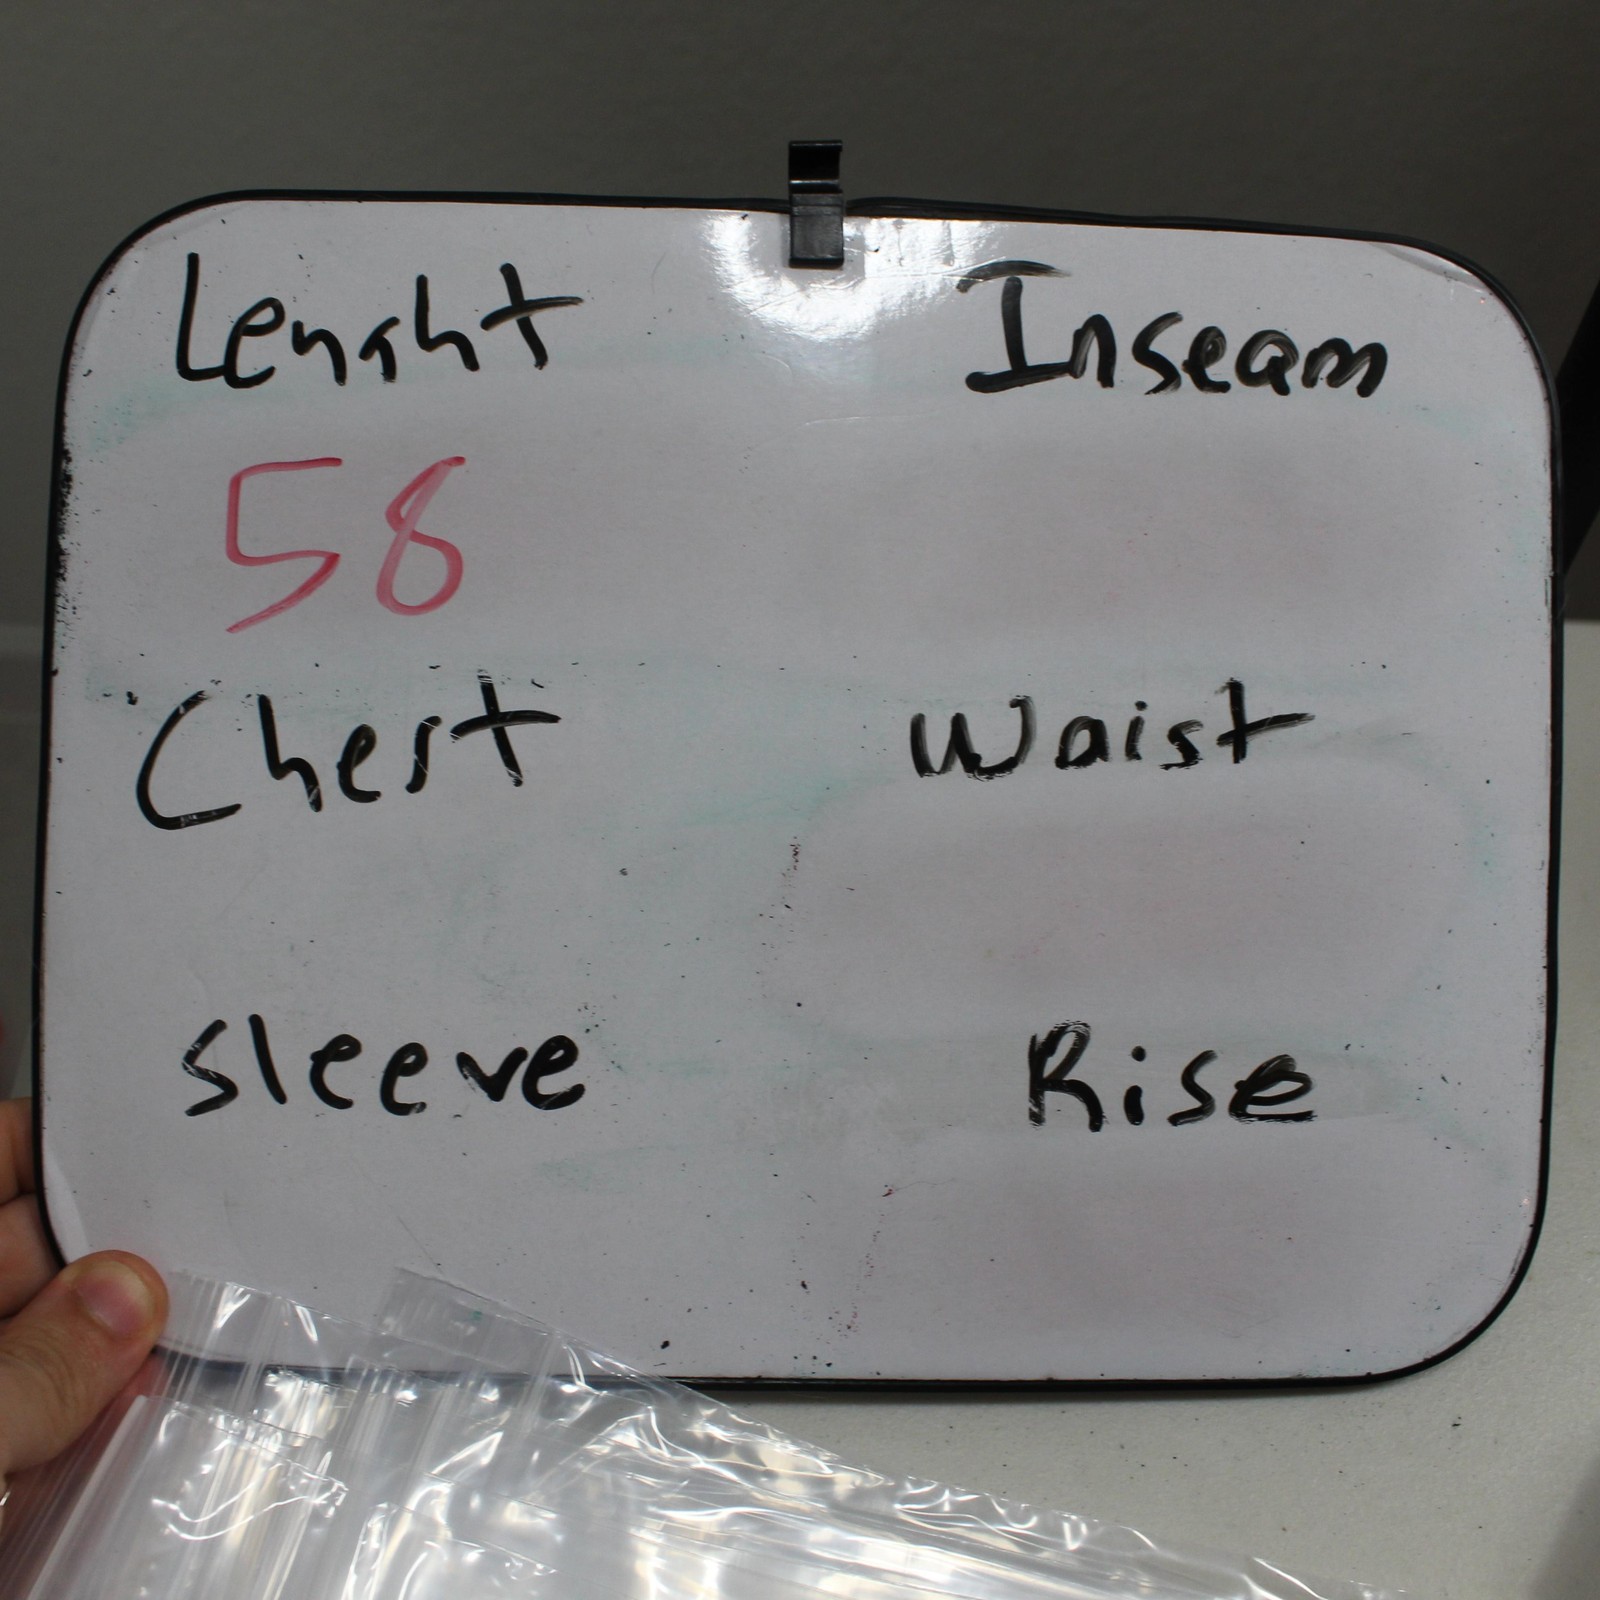 Lenght
Inseam
58
Chest
Waist
sleeve
Rise